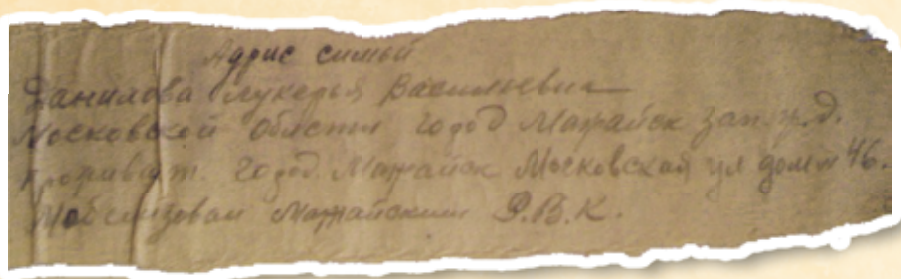 Адрис симьи
Данилова Лукерья Васильевна
Московской Области город Мажайск зап. ж.д.
проживает. город. Мажайск Московская ул дом № 46.
Мобелизован Мажайским Р.В.К.